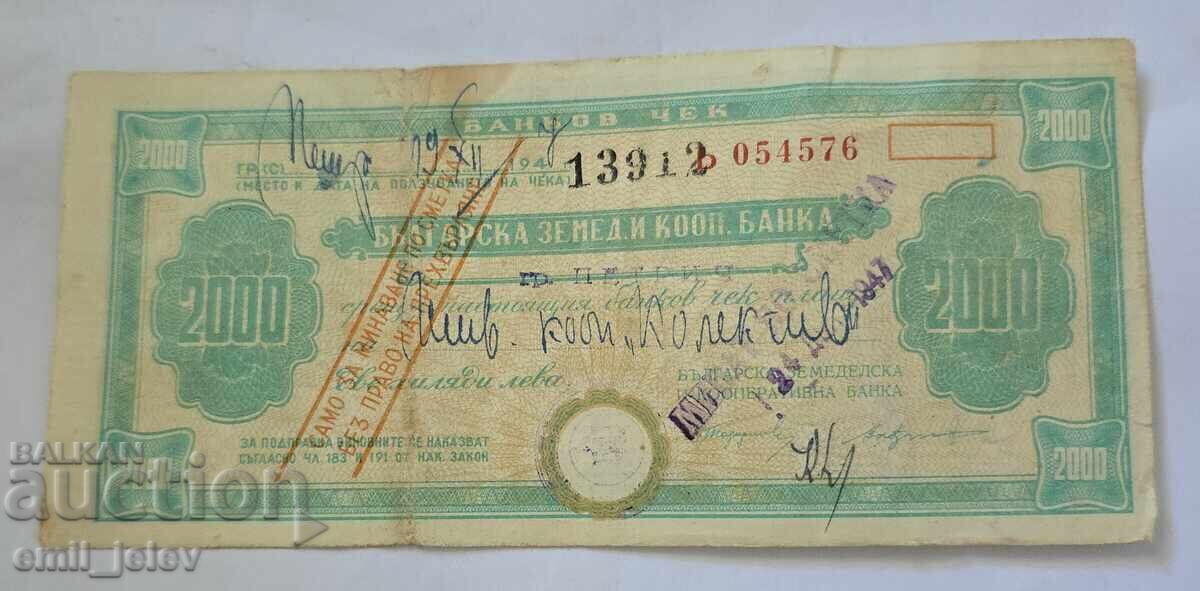 2000 БАНКОВ ЧЕК 2000
19 XII 194
13912 Ь 054576
(МЕСТО И ДАТА НА ПОЛУЧАВАНЕТО НА ЧЕКА)
БЪЛГАРСКА ЗЕМЕД. И КООП. БАНКА
гр. ПЕТРИЧ
2000 срещу настоящия банков чек 2000
кооп. „Колектив"
Две хиляди лева.
БЪЛГАРСКА ЗЕМЕДЕЛСКА
И КООПЕРАТИВНА БАНКА
САМО ЗА МИНАВАНЕ ПО СМЕТКА
БЕЗ ПРАВО НА ПРЕХВЪРЛЯНЕ
1947
ЗА ПОДПРАВКА ВИНОВНИТЕ СЕ НАКАЗВАТ
СЪГЛАСНО ЧЛ. 183 И 191 ОТ НАК. ЗАКОН
2000
BALKAN
auction
emil_jelev